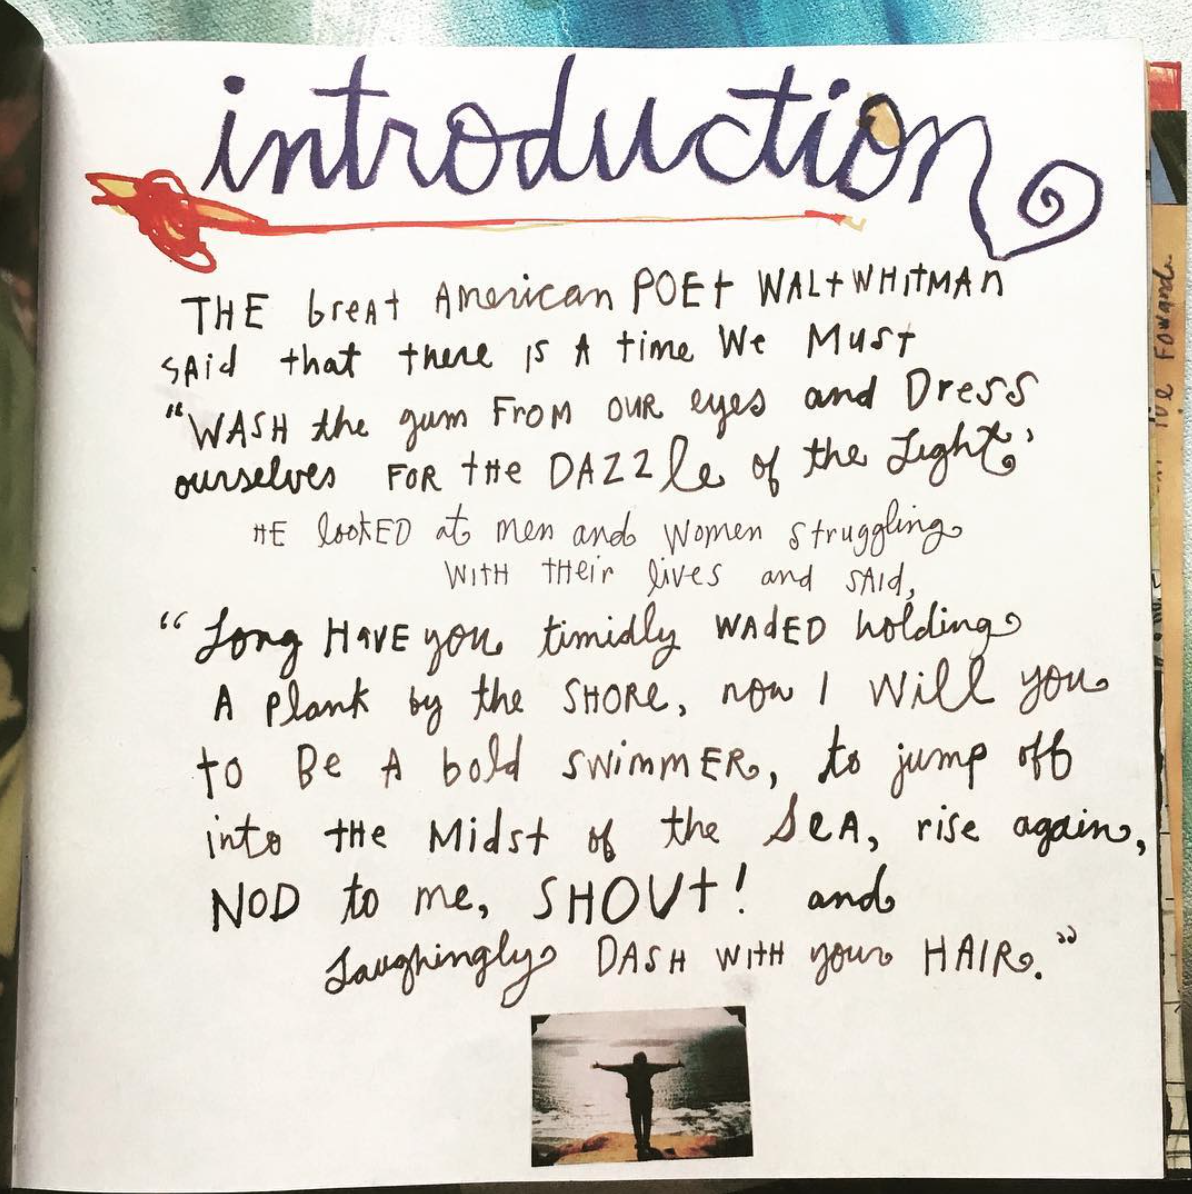 introduction
THE Great American POEt WALt WHItMAn
SAid that there IS A time We Must
"WASH the gum From OUR eyes and Dress
ourselves FOR tHE DAZZle of the Light,'
HE lookED at men and Women struggling
WITH THEir lives and SAID,
"Long HAVE you timidly WAdED holding
A plank by the SHORe, now I Will you
to Be A bold SwimmER, to jump off
into tHe Midst of the SeA, rise again,
NOD to me, SHOUt! and
Laughingly DASH WitH your HAIR."